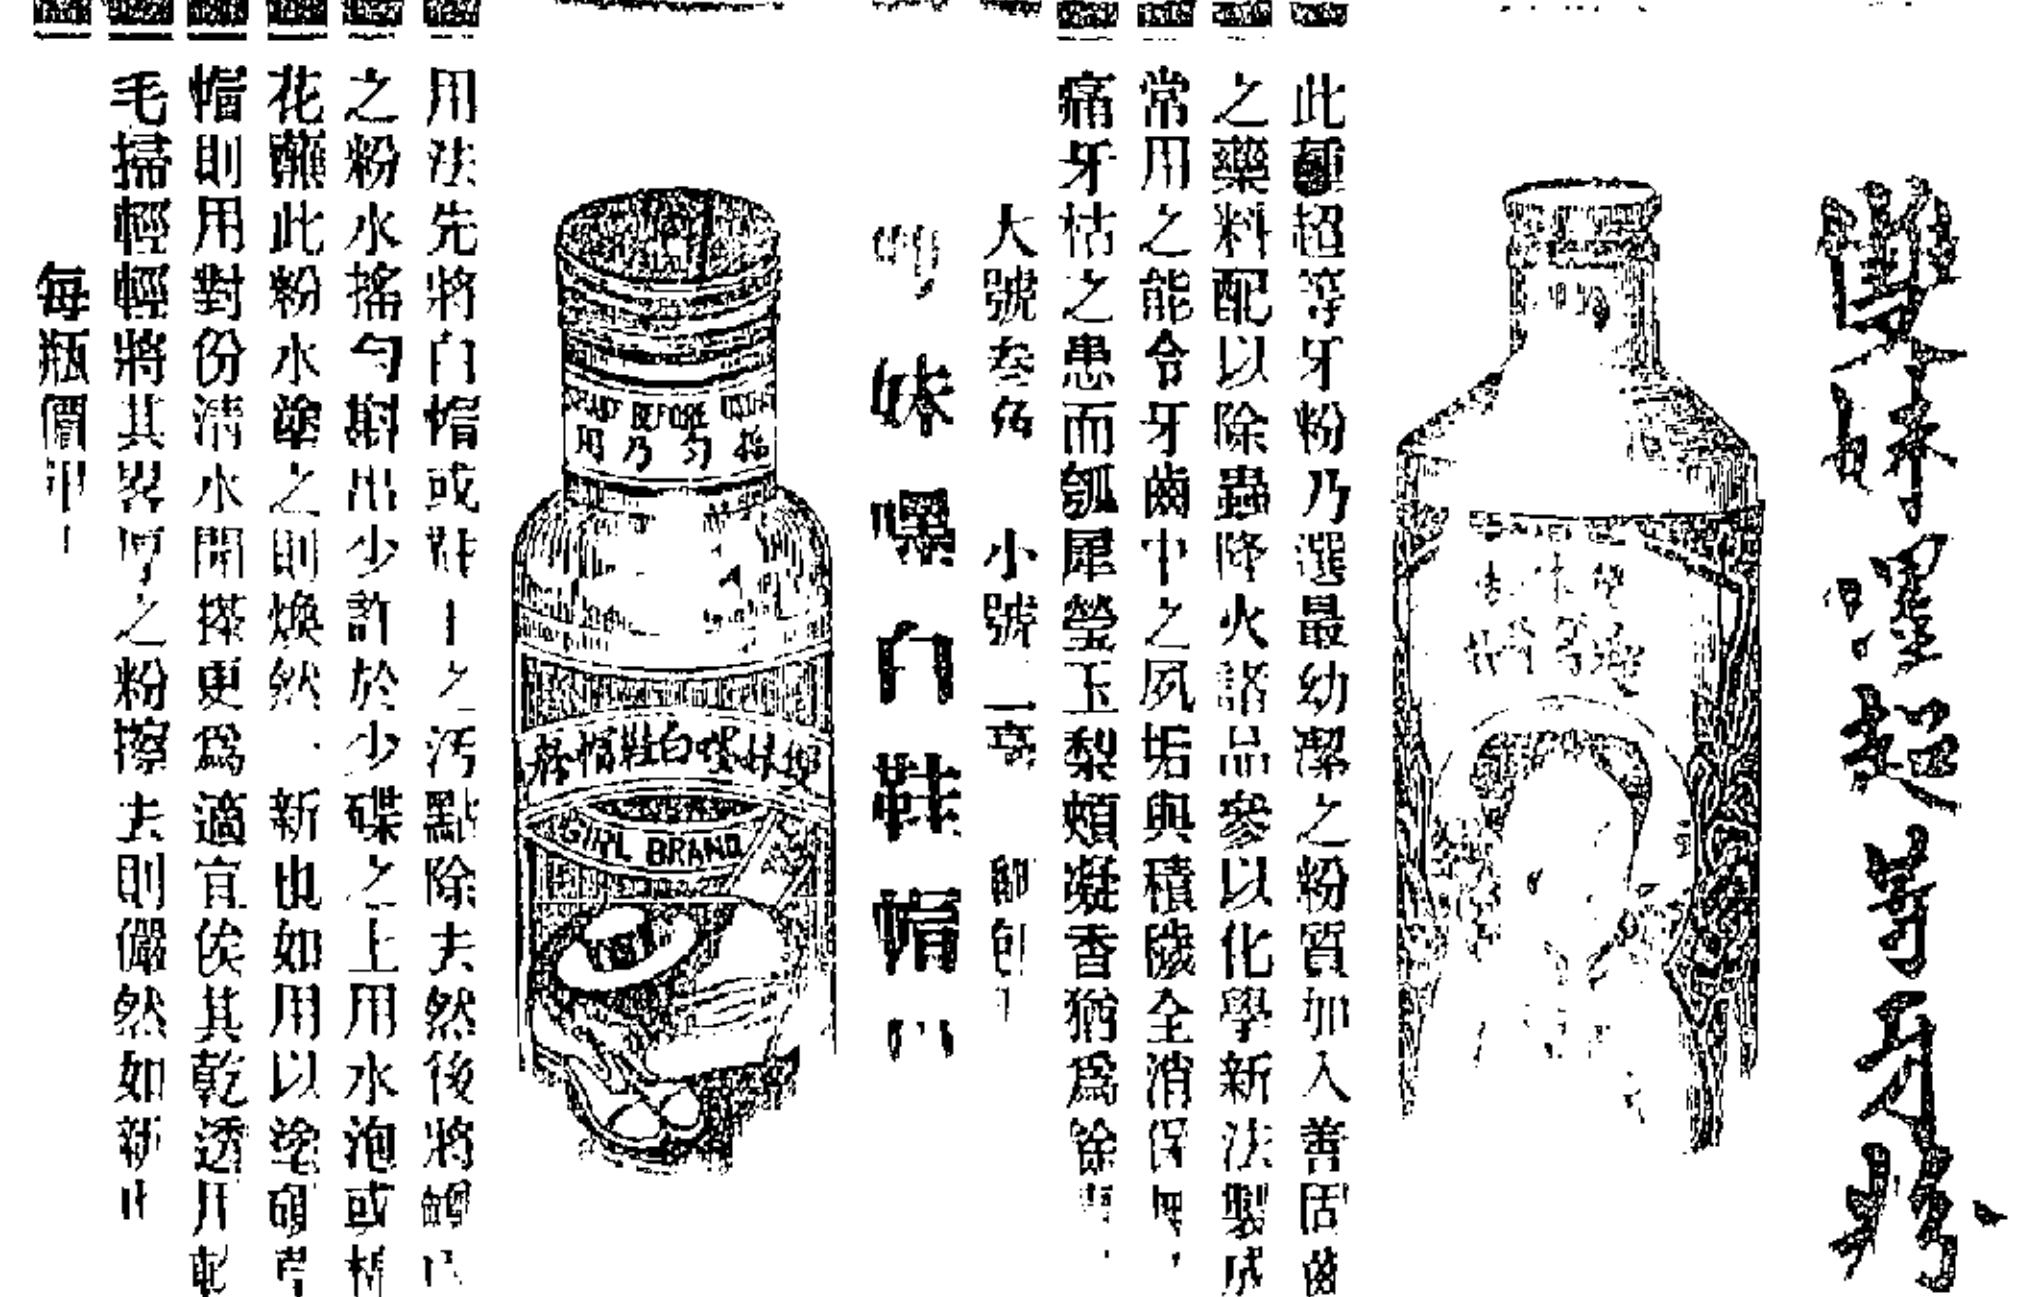 雙妹嚜超等牙粉
此種超等牙粉乃選最幼潔之粉質加入善固齒
之藥料配以除蟲降火諸品參以化學新法製成
常用之能令牙齒中之夙垢與積穢全消保無
痛牙枯之患而瓠犀瑩玉梨頰凝香猶爲餘事
大號叁角 小號一毫
妹嚜白鞋帽
SHAKE BEFORE USING
搖勻乃用
妹嚜白鞋帽
GIRL BRAND
用法先將白帽或鞋上之汚點除去然後將罇內
之粉水搖勻斟出少許於少碟之上用水泡或棉
花蘸此粉水塗之則煥然一新也如用以塗硬
帽則用對份清水開搽更爲適宜俟其乾透用軟
毛掃輕輕將其畧厚之粉擦去則儼然如新也
每瓶價